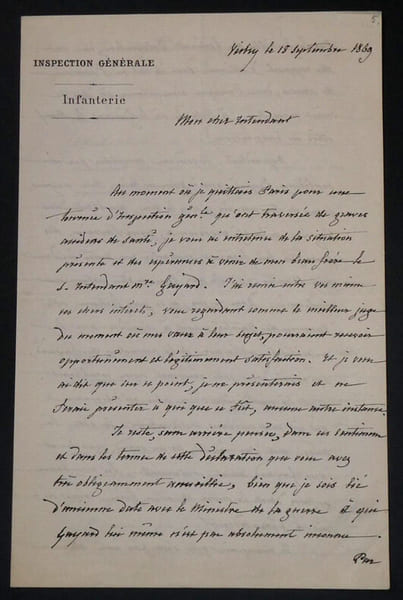 5.
Vichy le 15 septembre 1869
INSPECTION GÉNÉRALE
Infanterie
Mon cher Intendant
Au moment où je quittais Paris pour une
tournée d'Inspection gén.le qu'ont traversée de graves
accidens de santé, je vous ai entretenu de la situation
présente et des espérances à venir de mon beau frère le
S. Intendant Gayard. J'ai remis entre vos mains
ses chers intérêts, vous regardant comme le meilleur juge
du moment où mes vœux à leur sujet, pourraient recevoir
opportunément et légitimement satisfaction. Et je vous
ai dit que sur ce point, je ne présenterais et ne
ferais présenter à qui que ce fut, aucune autre instance.
Je reste, sans arrière pensée, dans ces sentimens
et dans les termes de cette déclaration que vous avez
très obligeamment accueillie, bien que je sois lié
d'ancienne date avec le Ministre de la guerre à qui
Gayard lui même n'est pas absolument inconnu.